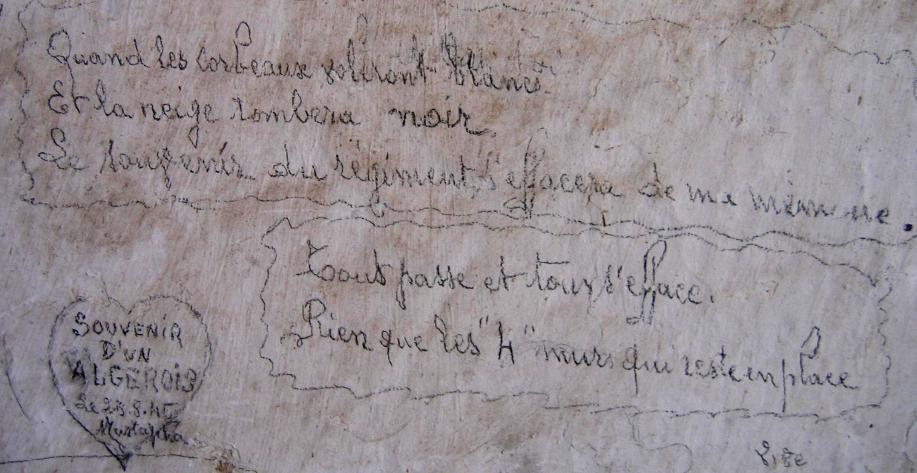 Quand les corbeaux voleront blancs
Et la neige tombera noir
Le souvenir du régiment s'effacera de ma mémoire.
Tout passe et tous s'efface.
Rien que les "4" murs qui reste en place
SOUVENIR
D'UN
ALGEROIS
Le 28.8.45
Mustapha